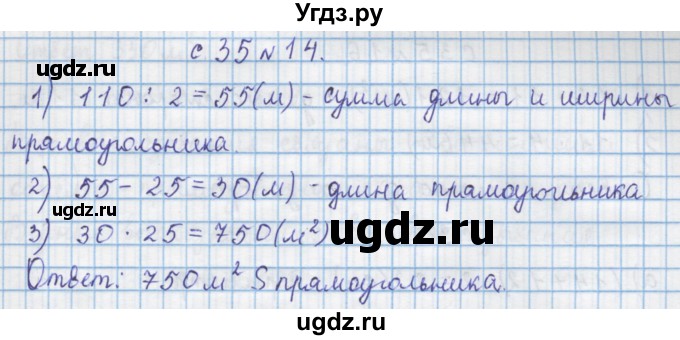 Угдз.ру
с 35 № 14.
ugdz.ru
1) 110 : 2 = 55(м) - сумма длины и ширины
прямоугольника.
ugdz.ru
2) 55 - 25 = 30(м) - длина прямоугольника
ugdz.ru
3) 30 · 25 = 750(м²)
ugdz.ru
Ответ: 750 м² S прямоугольника.
ugdz.ru
ugdz.ru